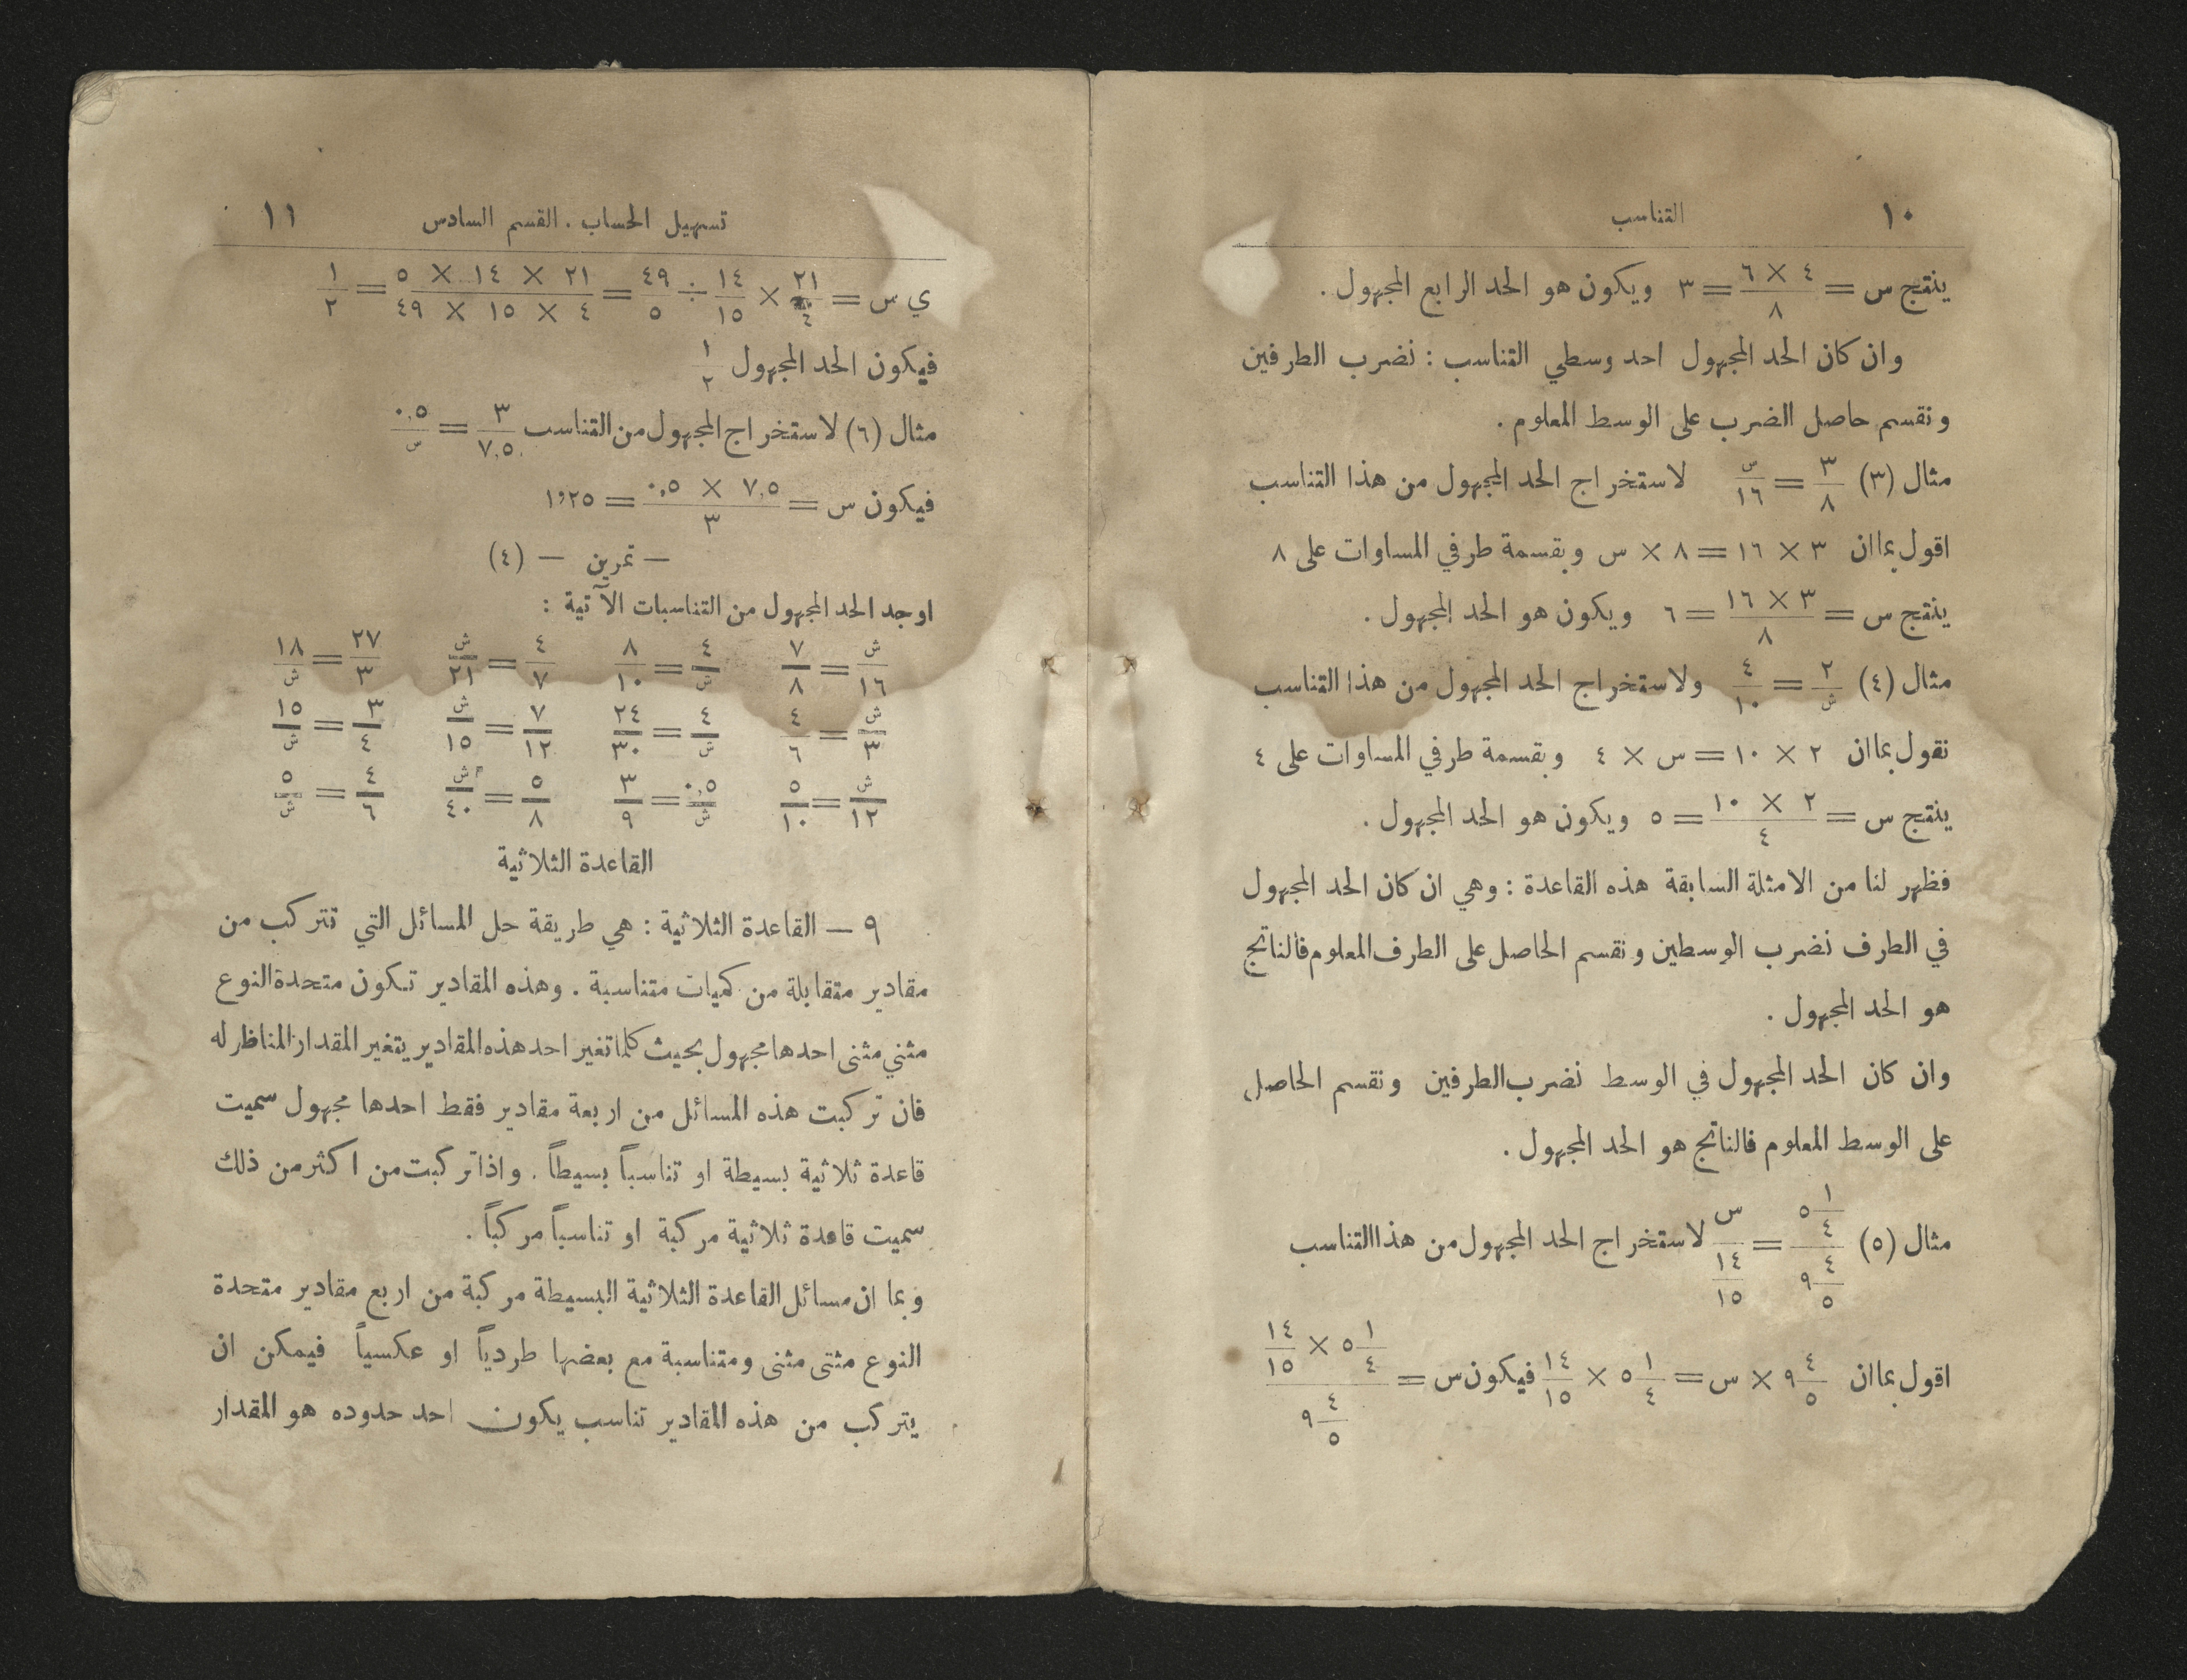 ١٠ التناسب
ينتج س = ٤ × ٦ / ٨ = ٣ ويكون هو الحد الرابع المجهول .
وان كان الحد المجهول احد وسطي التناسب : نضرب الطرفين
ونقسم حاصل الضرب على الوسط المعلوم .
مثال (٣) ٣/٨ = س/١٦ لاستخراج الحد المجهول من هذا التناسب
اقول بما ان ٣ × ١٦ = ٨ × س وبقسمة طرفي المساوات على ٨
ينتج س = ٣ × ١٦ / ٨ = ٦ ويكون هو الحد المجهول .
مثال (٤) ٢/ش = ٤/١٠ ولاستخراج الحد المجهول من هذا التناسب
نقول بما ان ٢ × ١٠ = س × ٤ وبقسمة طرفي المساوات على ٤
ينتج س = ٢ × ١٠ / ٤ = ٥ ويكون هو الحد المجهول .
فظهر لنا من الامثلة السابقة هذه القاعدة : وهي ان كان الحد المجهول
في الطرف نضرب الوسطين ونقسم الحاصل على الطرف المعلوم فالناتج
هو الحد المجهول .
وان كان الحد المجهول في الوسط نضرب الطرفين ونقسم الحاصل
على الوسط المعلوم فالناتج هو الحد المجهول .
مثال (٥) ٥ ١/٤ / ٩ ٤/٥ = س / ١٤/١٥ لاستخراج الحد المجهول من هذا التناسب
اقول بما ان ٩ ٤/٥ × س = ٥ ١/٤ × ١٤/١٥ فيكون س = ٥ ١/٤ × ١٤/١٥ / ٩ ٤/٥
تسهيل الحساب . القسم السادس ١١
ي س = ٢١/٤ × ١٤/١٥ ÷ ٤٩/٥ = ٢١ × ١٤ × ٥ / ٤ × ١٥ × ٤٩ = ١/٢
فيكون الحد المجهول ١/٢
مثال (٦) لاستخراج المجهول من التناسب ٣/٧,٥ = ٠,٥/س
فيكون س = ٧,٥ × ٠,٥ / ٣ = ١,٢٥
— تمرين — (٤)
اوجد الحد المجهول من التناسبات الآتية :
ش/١٦ = ٧/٨ ٤/ش = ٨/١٠ ٤/٧ = ش/٢١ ٢٧/٣ = ١٨/ش
ش/٣ = ٤/٦ ٤/ش = ٢٤/٣٠ ٧/١٢ = ش/١٥ ٣/٤ = ١٥/ش
ش/١٢ = ٥/١٠ ٠,٥/ش = ٣/٩ ٥/٨ = ش/٤٠ ٤/٦ = ٥/ش
القاعدة الثلاثية
٩ — القاعدة الثلاثية : هي طريقة حل المسائل التي تتركب من
مقادير متقابلة من كميات متناسبة . وهذه المقادير تكون متحدة النوع
مثني مثنى احدها مجهول بحيث كلما تغير احد هذه المقادير يتغير المقدار المناظر له
فان تركبت هذه المسائل من اربعة مقادير فقط احدها مجهول سميت
قاعدة ثلاثية بسيطة او تناسباً بسيطاً . واذا تركبت من اكثر من ذلك
سميت قاعدة ثلاثية مركبة او تناسباً مركباً .
وبما ان مسائل القاعدة الثلاثية البسيطة مركبة من اربع مقادير متحدة
النوع مثتى مثنى ومتناسبة مع بعضها طردياً او عكسياً فيمكن ان
يتركب من هذه المقادير تناسب يكون احد حدوده هو المقدار